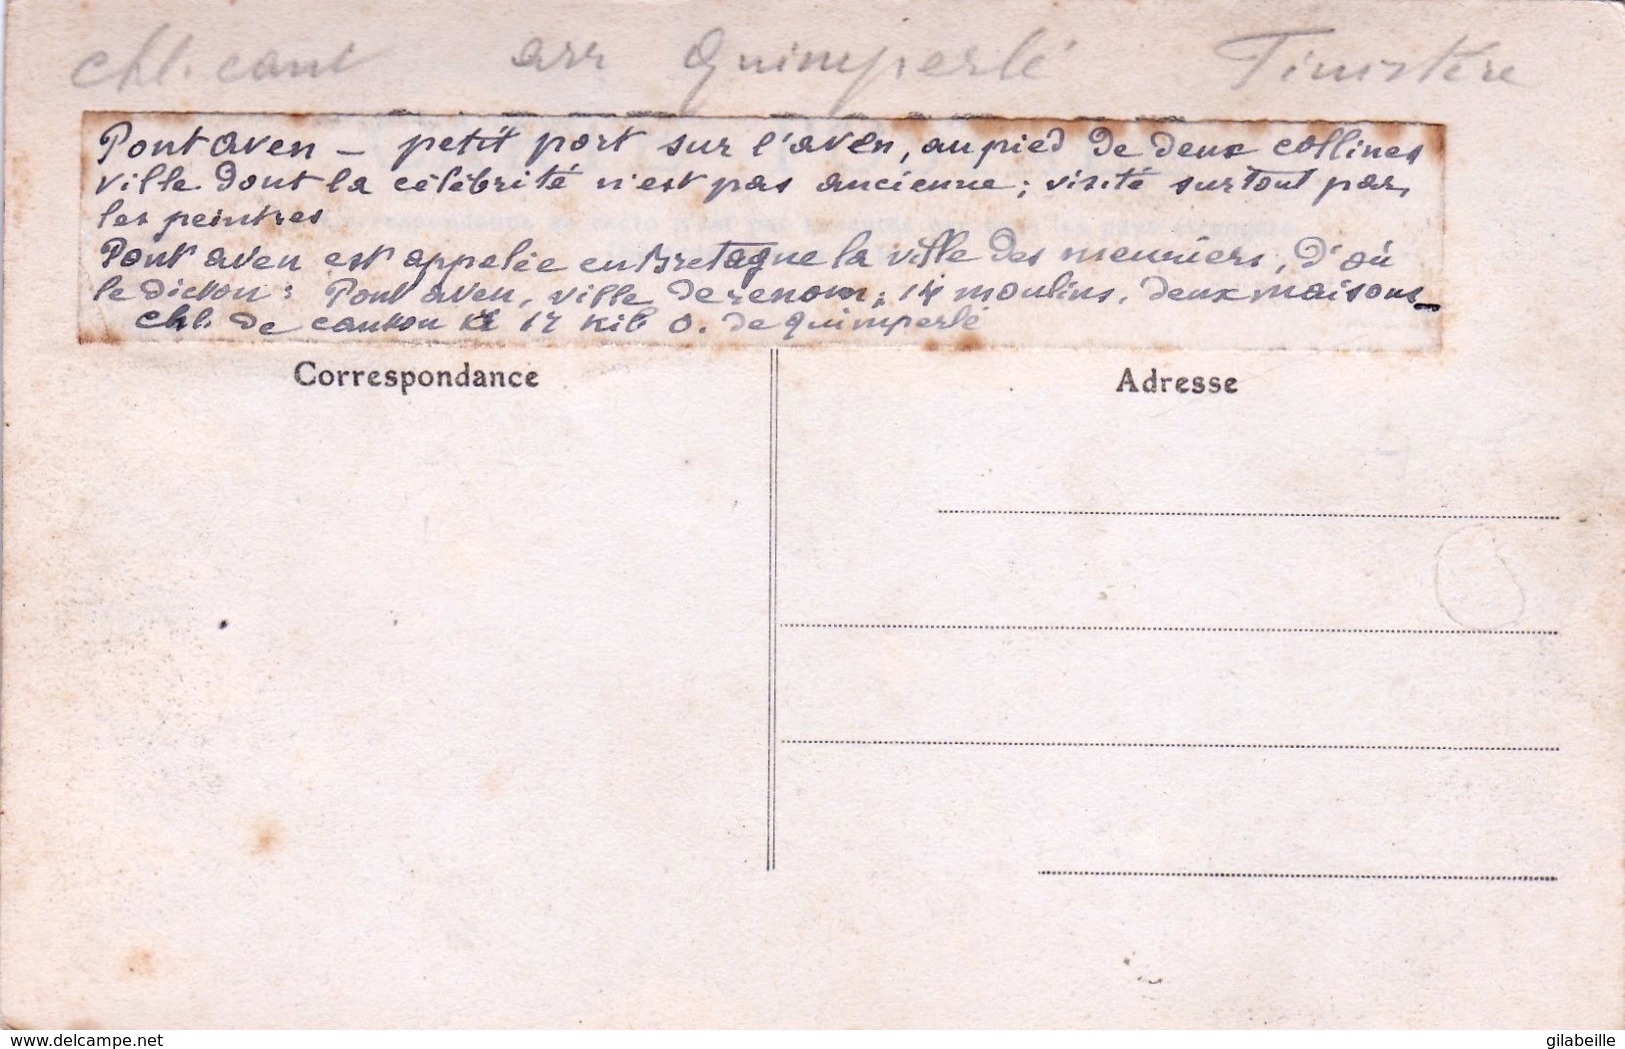 chl. cant arr Quimperlé Finistère
Pont aven – petit port sur l'aven, au pied de deux collines
ville dont la célébrité n'est pas ancienne ; visité surtout par,
les peintres
Pont aven est appelée en Bretagne la ville des meuniers, d'où
le dicton : Pont aven, ville de renom ; 14 moulins, deux maisons
chl. de canton à 17 kil. O. de Quimperlé
Correspondance
Adresse
delcampe.net
gilabeille